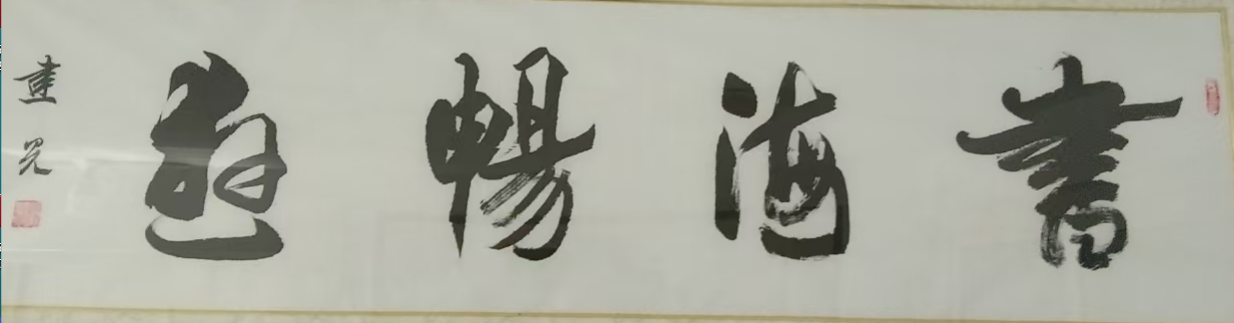 書海暢遊
建光